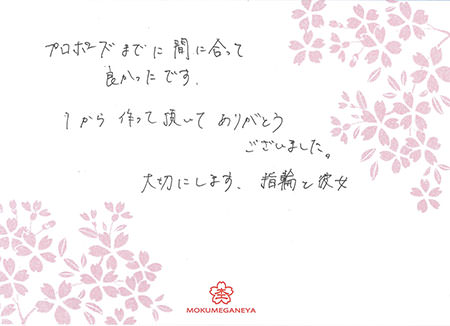 プロポーズまでに間に合って
良かったです.
1から作って頂いてありがとう
ございました。
大切にします、指輪と彼女
MOKUMEGANEYA